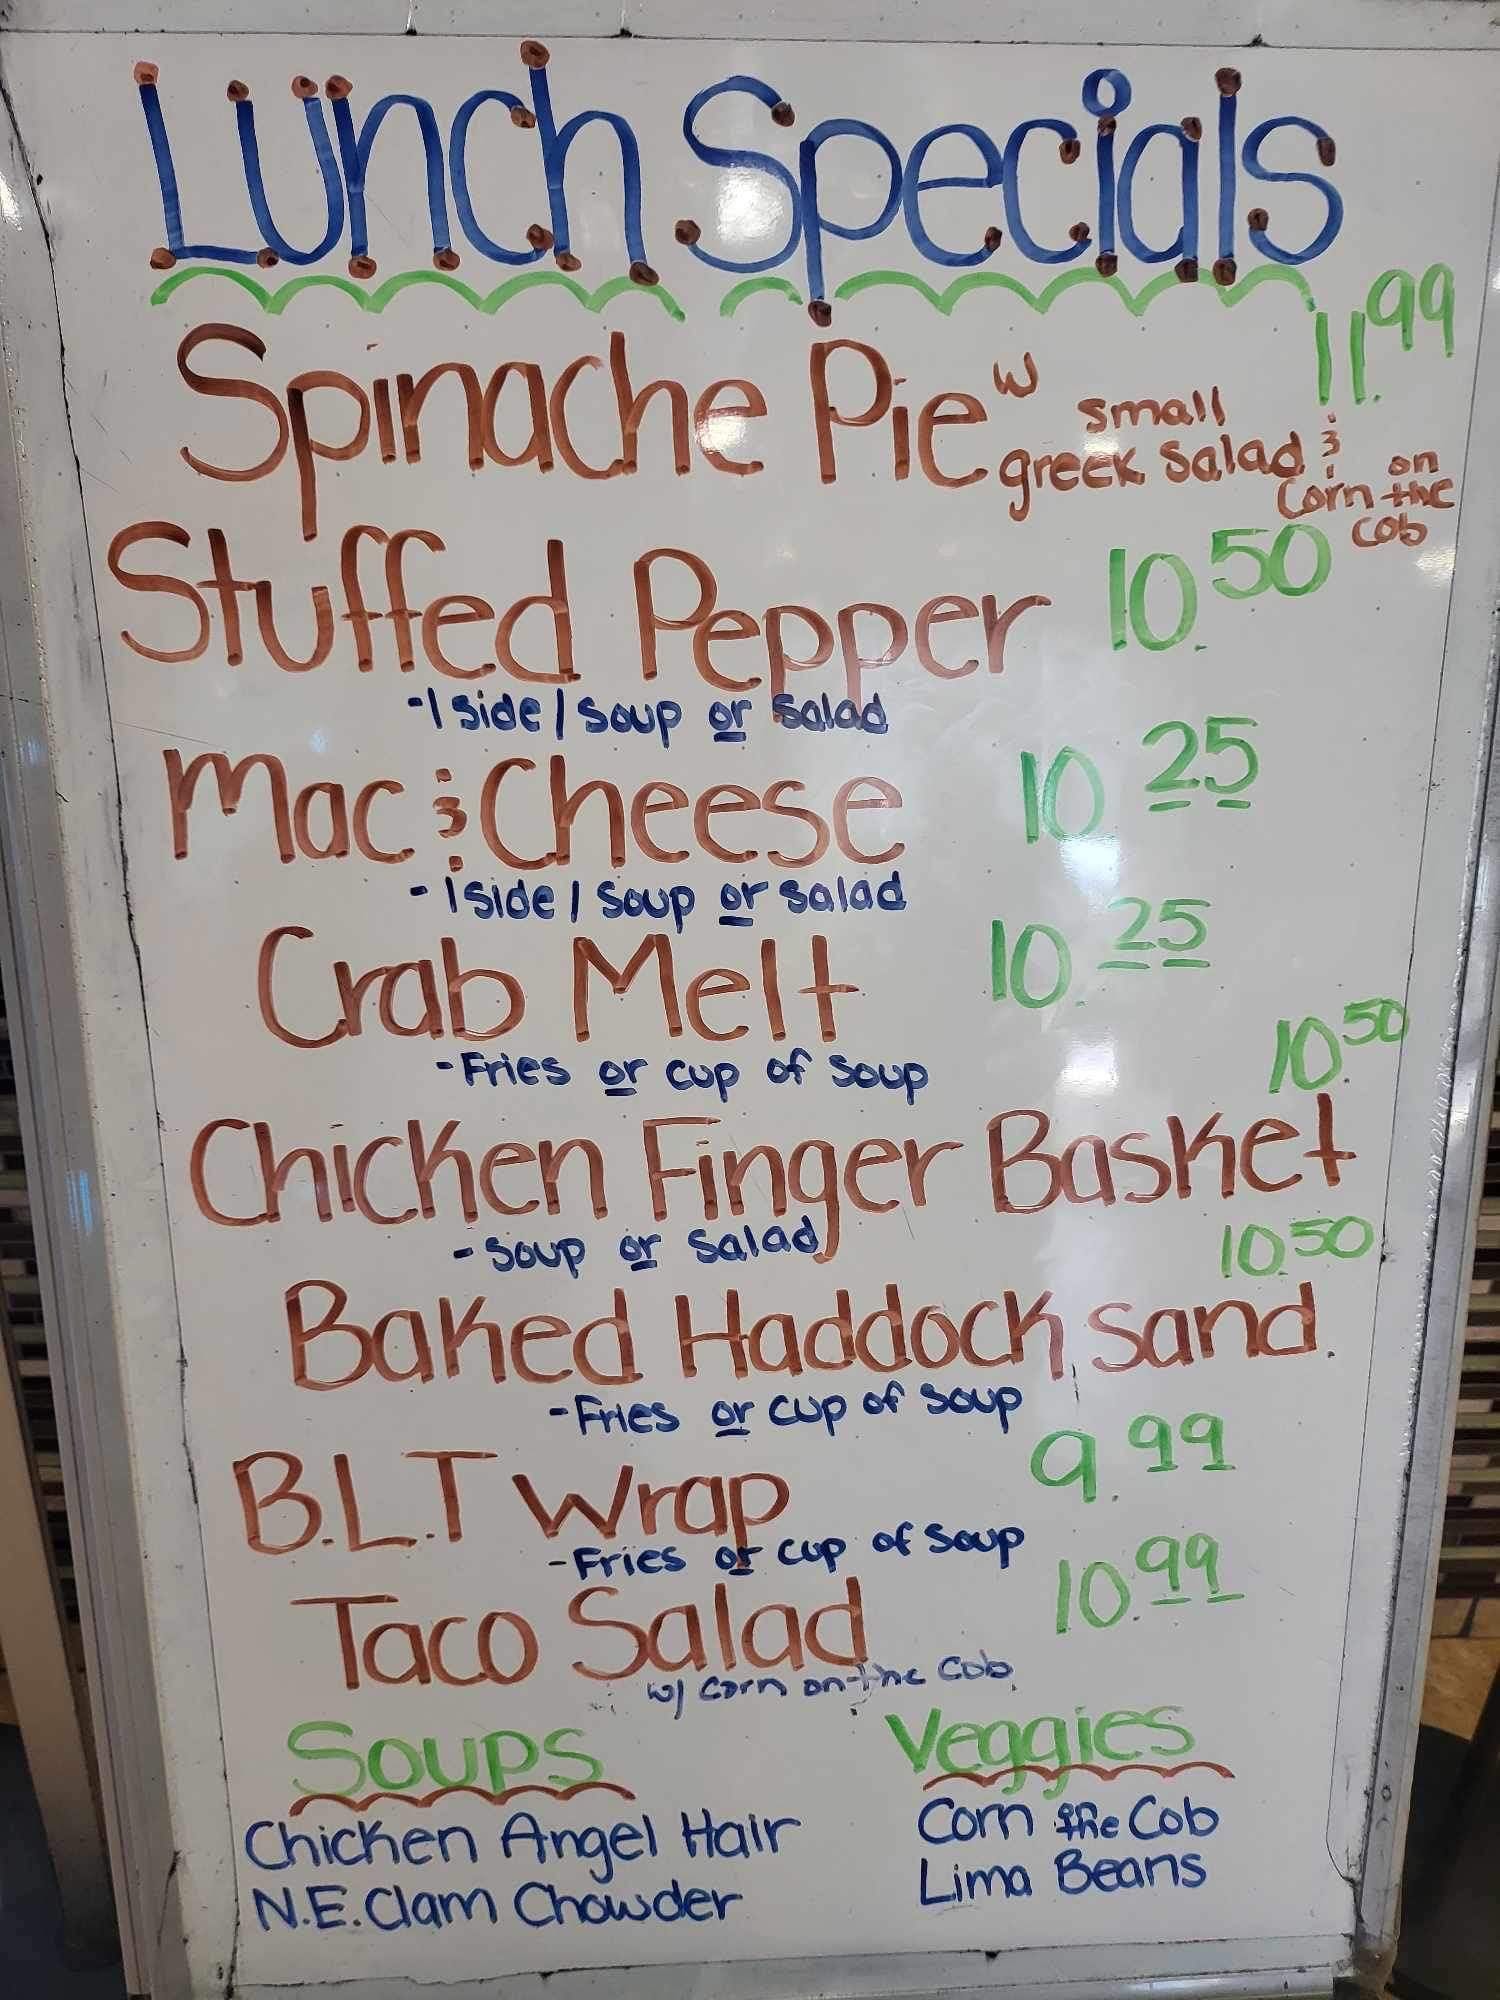 Lunch Specials
Spinache Pie w small greek salad & corn on the cob 11.99
Stuffed Pepper 10.50
-1 side / soup or salad
Mac & Cheese 10.25
-1 side / soup or salad
Crab Melt 10.25
-Fries or cup of soup
10.50
Chicken Finger Basket
-soup or salad
10.50
Baked Haddock sand.
-Fries or cup of soup
B.L.T Wrap 9.99
-Fries or cup of soup
Taco Salad 10.99
w/ corn on-the cob
Soups
Chicken Angel Hair
N.E. Clam Chowder
Veggies
Corn the Cob
Lima Beans